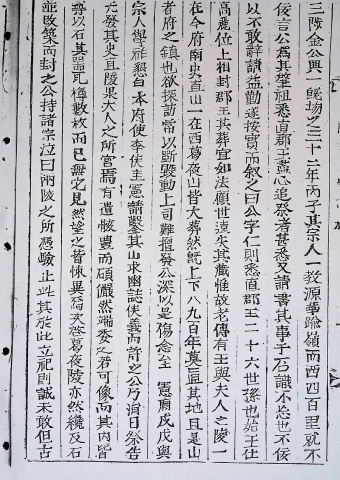 三陟金公興一歸塲之三十二年丙子其宗人一教源華踰嶺而西四百里就不
佞言公爲其肇祖悉直郡王盡心追祭者甚悉又請書其事于石識不忘也不佞
以不敢辭請益勤遂按實而叙之曰公字仁則悉直郡王二十六世孫也始王仕
高麗位上相封郡王其葬宜如法顧世遠失其藏惟故老傳有王與夫人之陵一
在今府南史直山一在西葛夜山皆大葬然旣上下八九百年莫區其地且是山
者府之鎭也欲探訪常以斷毁動上司難擅發公深以是傷念至 憲廟戊戌與
宗人學祥懇自本府使李侯圭憲請鑿其山求幽誌侯義而許之公乃涓日祭告
先發其史直陵果大人之所窆焉有遺骸豊而碩儼然端委之君可像而其內皆
甃以石其器瓦樽數枚而已無它見然望之皆悚異焉次啓葛夜陵亦然纔及石
並敢築而封之公持諸宗泣曰兩陵之所憑驗止此其於此立祀則誠未敢但古